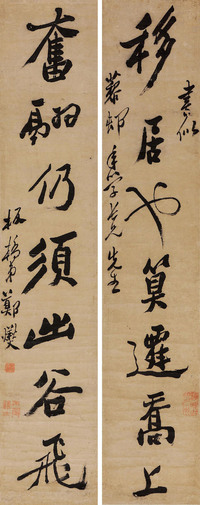 書似
邨年學兄先生
移居也算遷喬上
奮翮仍須出谷飛
板橋弟鄭燮